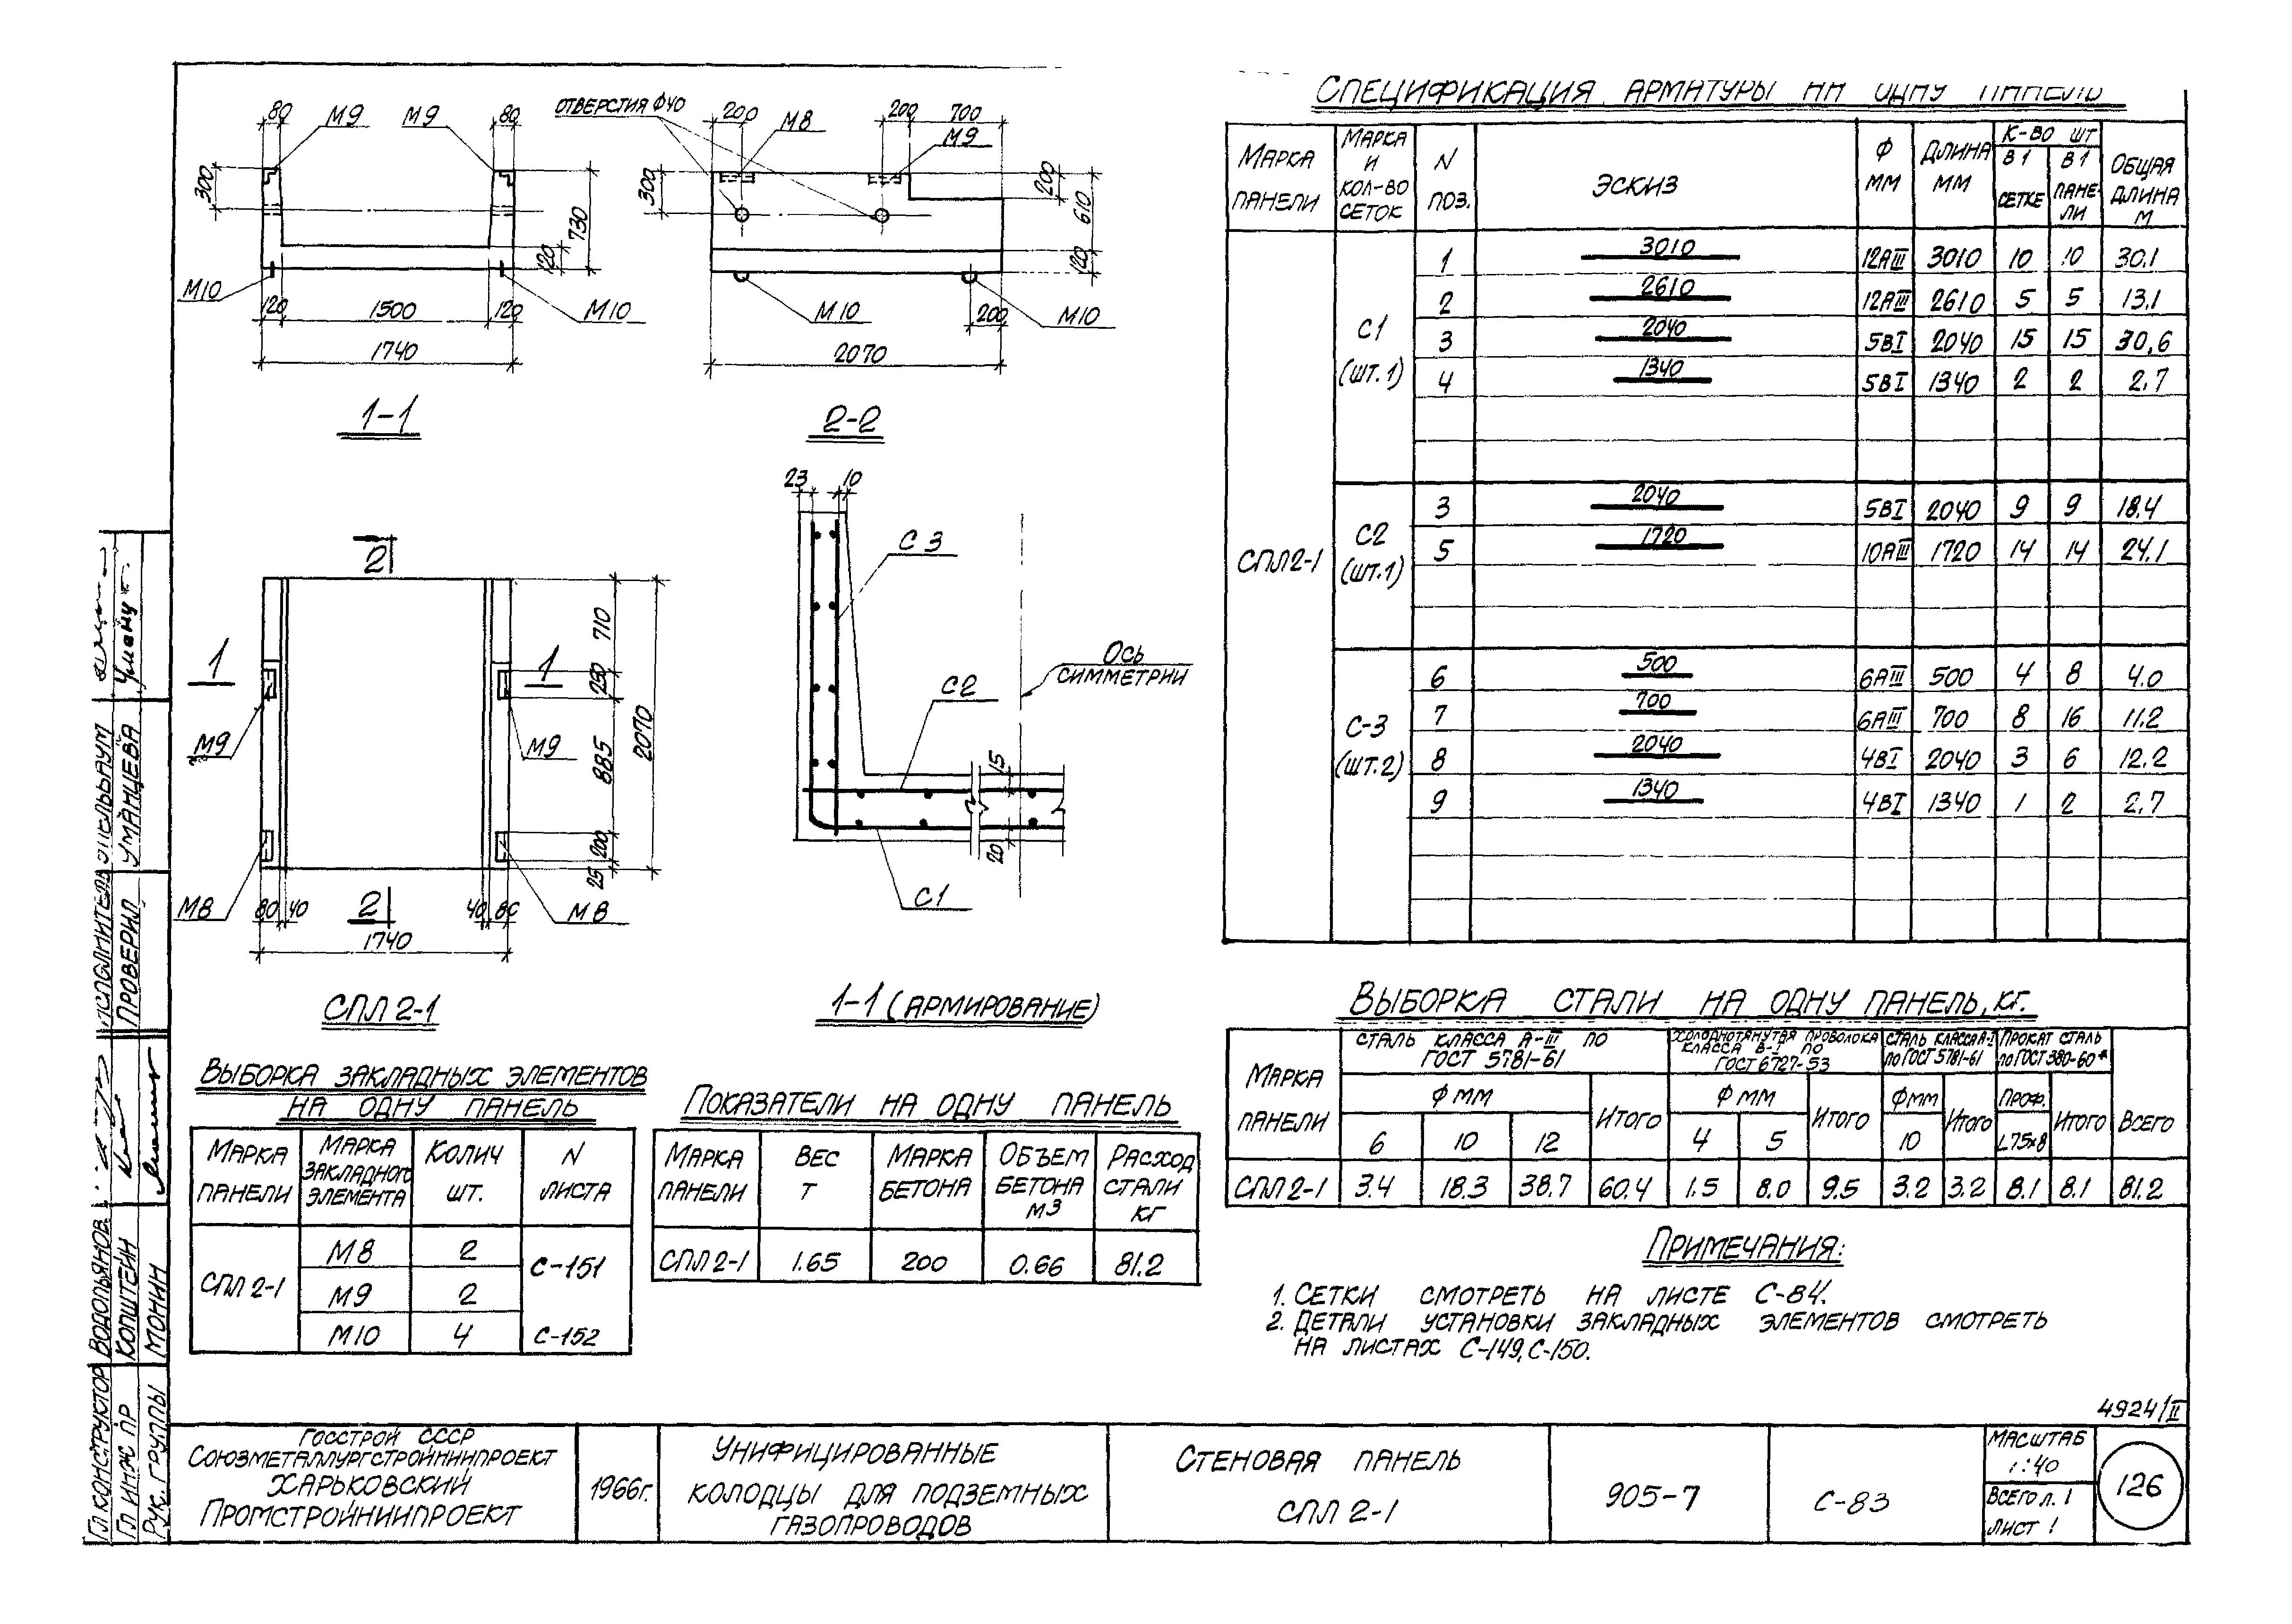 80
М9
М9
80
300
730
120
М10
120
1500
120
М10
1740
1-1
ОТВЕРСТИЯ Ф40
200
М8
200
700
М9
300
200
610
120
М10
200
М10
2070
2-2
2
1
1
М9
М9
М8
М8
710
250
885
200
25
2070
80
40
2
40
80
1740
СПЛ 2-1
23
10
С 3
С2
ОСЬ
СИММЕТРИИ
15
20
С1
1-1 (АРМИРОВАНИЕ)
СПЕЦИФИКАЦИЯ АРМАТУРЫ НА ОДНУ ПАНЕЛЬ
МАРКА ПАНЕЛИ | МАРКА И КОЛ-ВО СЕТОК | N ПОЗ. | ЭСКИЗ | Ф ММ | ДЛИНА ММ | К-ВО ШТ | В 1 СЕТКЕ | В 1 ПАНЕЛИ | ОБЩАЯ ДЛИНА М
СПЛ2-1
С1 (ШТ.1)
1 3010 12АIII 3010 10 10 30.1
2 2610 12АIII 2610 5 5 13.1
3 2040 5ВI 2040 15 15 30,6
4 1340 5ВI 1340 2 2 2.7
С2 (ШТ.1)
3 2040 5ВI 2040 9 9 18.4
5 1720 10АIII 1720 14 14 24.1
С-3 (ШТ.2)
6 500 6АIII 500 4 8 4.0
7 700 6АIII 700 8 16 11.2
8 2040 4ВI 2040 3 6 12.2
9 1340 4ВI 1340 1 2 2.7
ВЫБОРКА ЗАКЛАДНЫХ ЭЛЕМЕНТОВ
НА ОДНУ ПАНЕЛЬ
МАРКА ПАНЕЛИ | МАРКА ЗАКЛАДНОГО ЭЛЕМЕНТА | КОЛИЧ ШТ. | N ЛИСТА
СПЛ 2-1
М8 2
С-151
М9 2
М10 4 С-152
ПОКАЗАТЕЛИ НА ОДНУ ПАНЕЛЬ
МАРКА ПАНЕЛИ | ВЕС Т | МАРКА БЕТОНА | ОБЪЕМ БЕТОНА М3 | РАСХОД СТАЛИ КГ
СПЛ 2-1 1.65 200 0.66 81.2
ВЫБОРКА СТАЛИ НА ОДНУ ПАНЕЛЬ, КГ.
МАРКА ПАНЕЛИ
СТАЛЬ КЛАССА А-III ПО
ГОСТ 5781-61
ХОЛОДНОТЯНУТАЯ ПРОВОЛОКА
КЛАССА В-I ПО
ГОСТ 6727-53
СТАЛЬ КЛАССА А-I
ПО ГОСТ 5781-61
ПРОКАТ СТАЛЬ
ПО ГОСТ 380-60*
Ф ММ ИТОГО Ф ММ ИТОГО Ф ММ ИТОГО ПРОФ. ИТОГО ВСЕГО
6 10 12 4 5 10 L75х8
СПЛ 2-1 3.4 18.3 38.7 60.4 1.5 8.0 9.5 3.2 3.2 8.1 8.1 81.2
ПРИМЕЧАНИЯ:
1. СЕТКИ СМОТРЕТЬ НА ЛИСТЕ С-84.
2. ДЕТАЛИ УСТАНОВКИ ЗАКЛАДНЫХ ЭЛЕМЕНТОВ СМОТРЕТЬ
НА ЛИСТАХ С-149, С-150.
4924/II
ГОССТРОЙ СССР
СОЮЗМЕТАЛЛУРГСТРОЙНИИПРОЕКТ
ХАРЬКОВСКИЙ
ПРОМСТРОЙНИИПРОЕКТ
1966г.
УНИФИЦИРОВАННЫЕ
КОЛОДЦЫ ДЛЯ ПОДЗЕМНЫХ
ГАЗОПРОВОДОВ
СТЕНОВАЯ ПАНЕЛЬ
СПЛ 2-1
905-7
С-83
МАСШТАБ
1:40
ВСЕГО Л. 1
ЛИСТ 1
126
ГЛ КОНСТРУКТОР ВОДОПЬЯНОВ
ГЛ ИНЖ ПР КОПШТЕЙН
РУК. ГРУППЫ МОНИН
ИСПОЛНИТЕЛЬ
ПРОВЕРИЛ УМАНЦЕВА